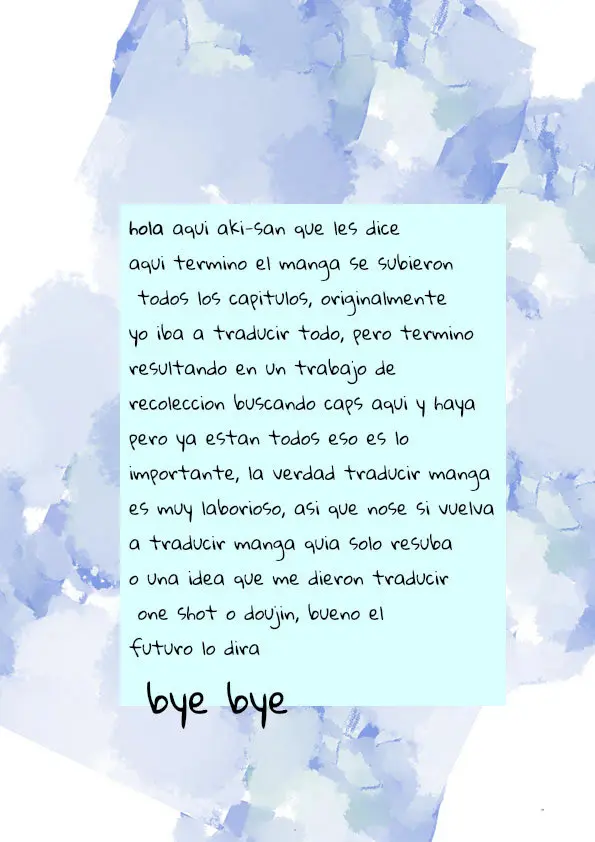 hola aqui aki-san que les dice
aqui termino el manga se subieron
todos los capitulos, originalmente
yo iba a traducir todo, pero termino
resultando en un trabajo de
recoleccion buscando caps aqui y haya
pero ya estan todos eso es lo
importante, la verdad traducir manga
es muy laborioso, asi que nose si vuelva
a traducir manga quia solo resuba
o una idea que me dieron traducir
one shot o doujin, bueno el
futuro lo dira
bye bye